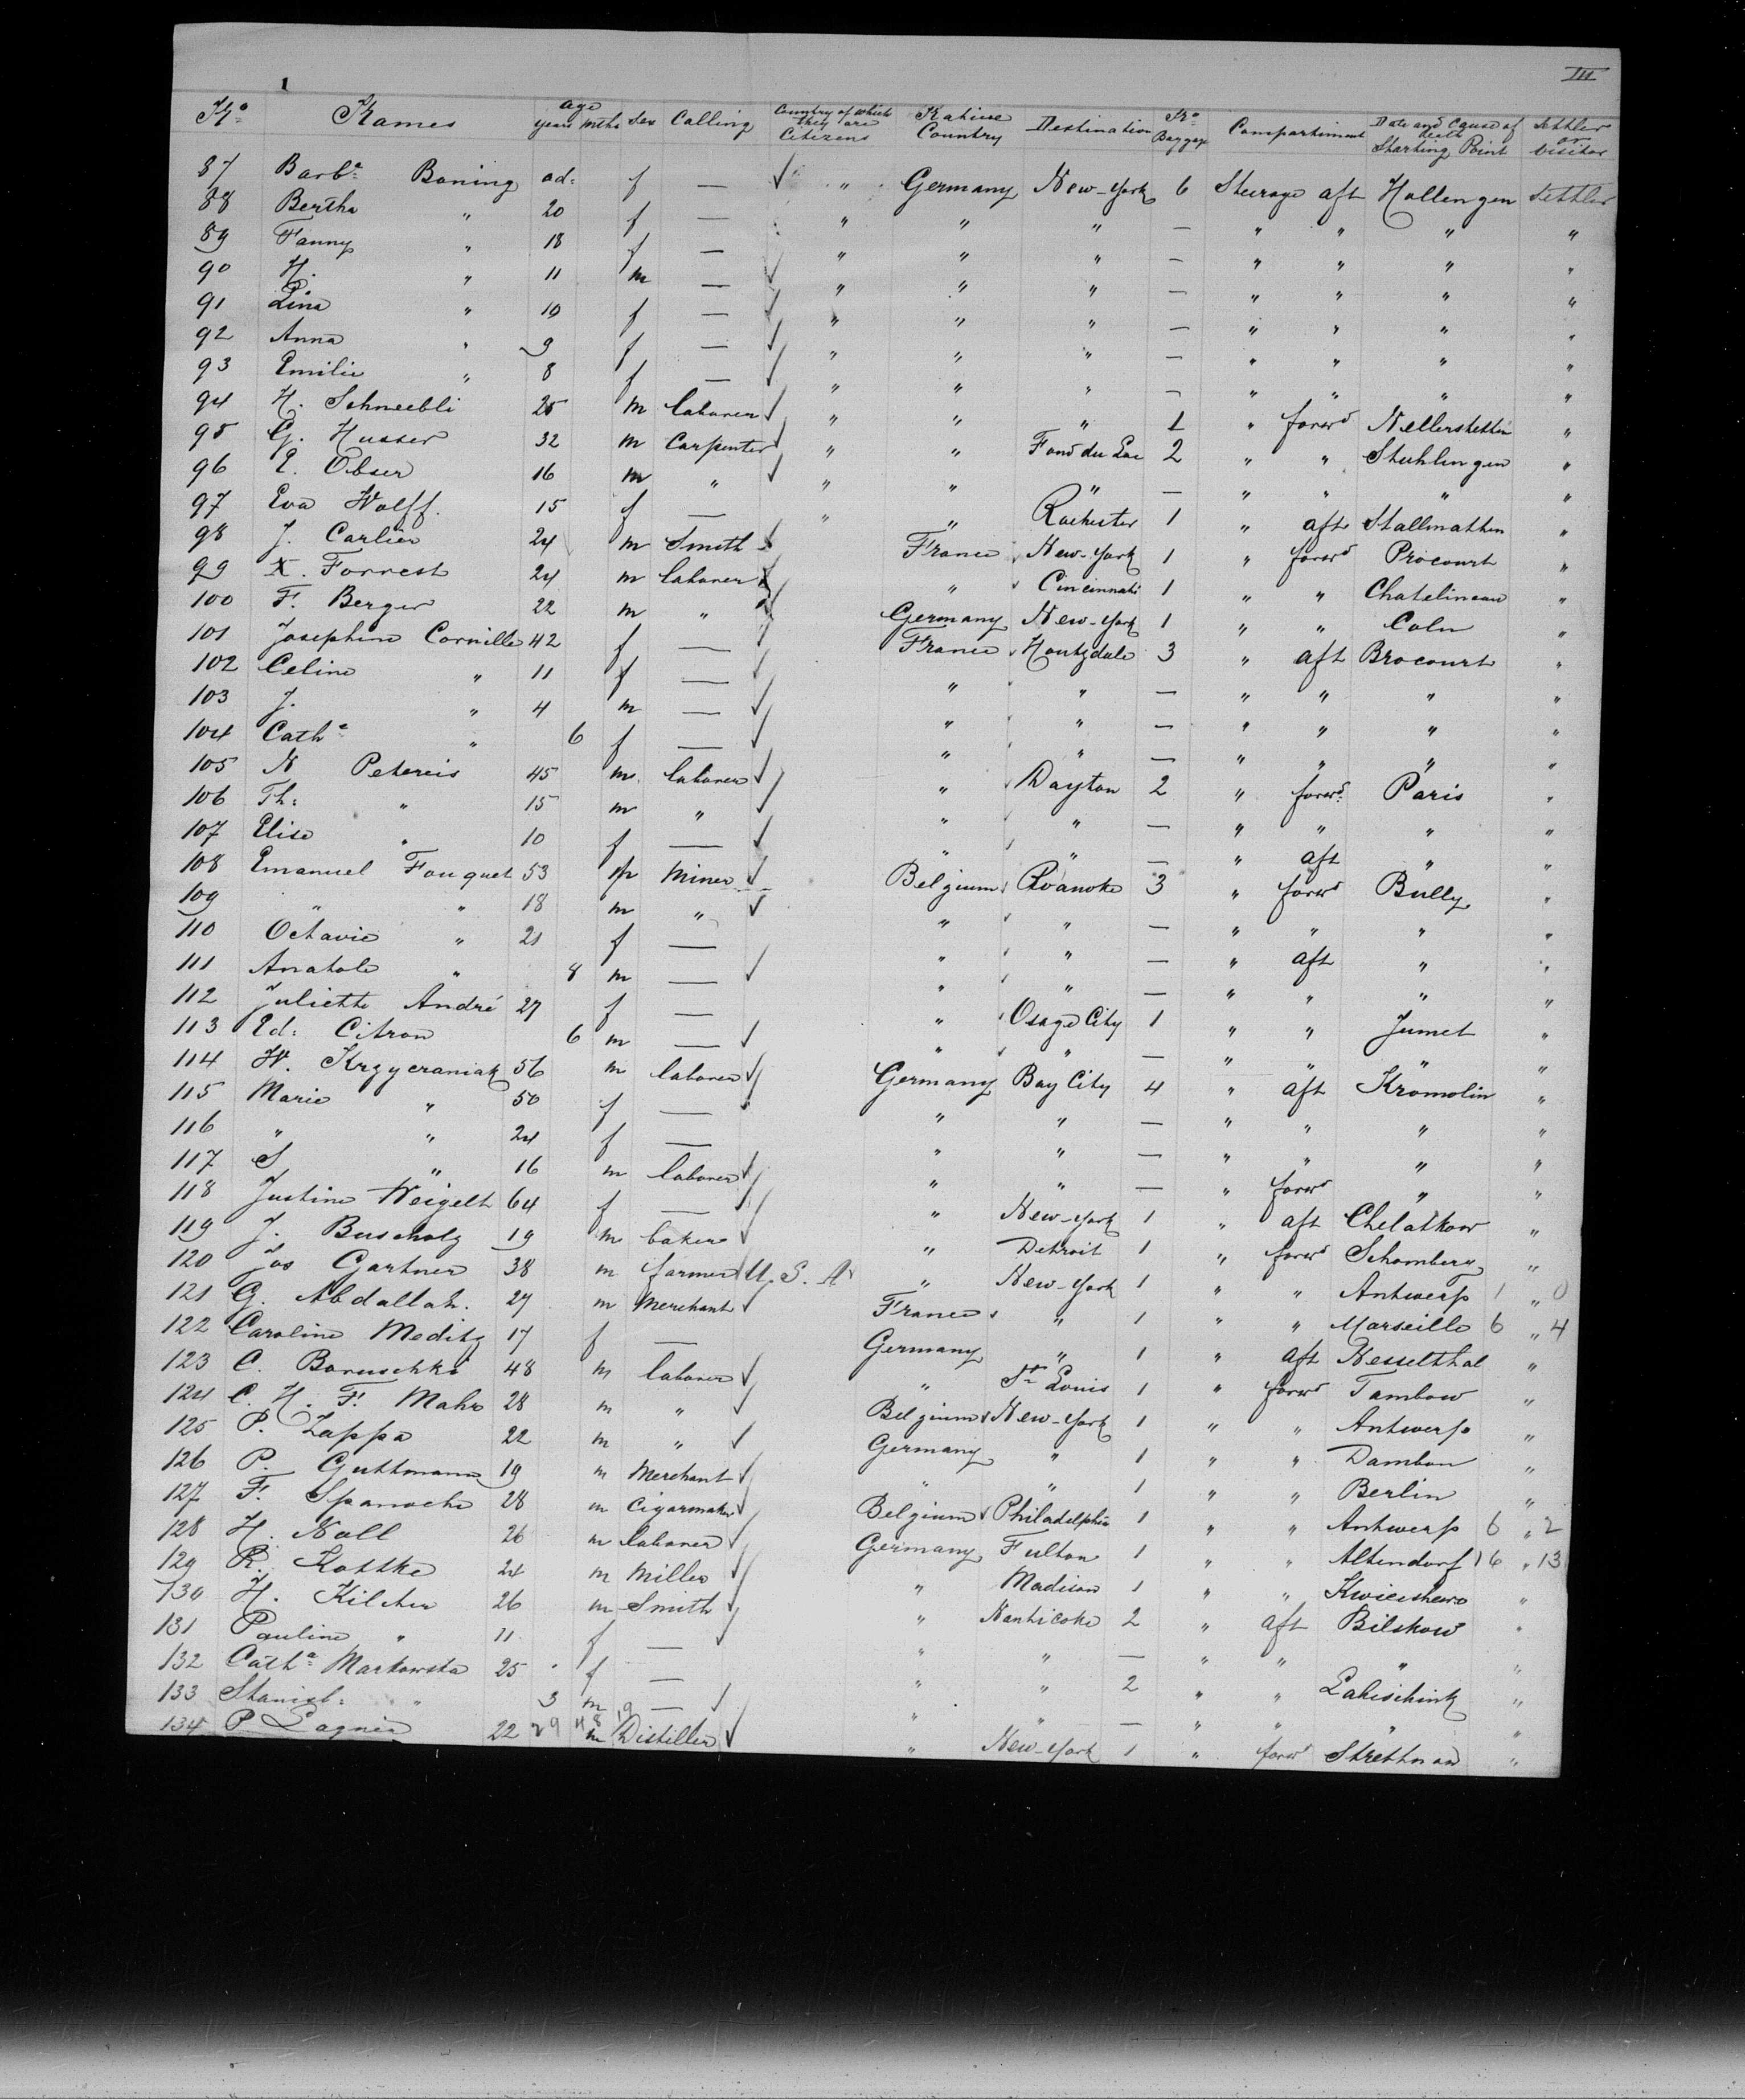 III
No Names age years mths Sex Calling Country of which they are Citizens Native Country Destination No Baggage Compartiment Date and Cause of death Starting Point Settler or Visitor
87 Barba Boning ad: f — " Germany New-York 6 Steerage aft Hollengen Settler
88 Bertha " 20 f — " " " — " " " "
89 Fanny " 18 f — " " " — " " " "
90 H. " 11 m — " " " — " " " "
91 Lina " 10 f — " " " — " " " "
92 Anna " 9 f — " " " — " " " "
93 Emilie " 8 f — " " " — " " " "
94 H. Schneebli 25 m laborer " " " 1 " forwd Nellerstetten "
95 G. Husser 32 m Carpenter " " Fond du Lac 2 " " Stuhlingen "
96 E. Obser 16 m " " " " — " " " "
97 Eva Wolff. 15 f — " " Rochester 1 " aft Stallmatten "
98 J. Carlier 24 m Smith France New-York 1 " forwd Procourt "
99 X. Forrest 24 m laborer " Cincinnati 1 " " Chatelineau "
100 F. Berger 22 m " Germany New-York 1 " " Coln "
101 Josephine Cornille 42 f — France Houtzdale 3 " aft Brocourt "
102 Celine " 11 f — " " — " " " "
103 J. " 4 m — " " — " " " "
104 Catha " 6 f — " " — " " " "
105 N Petereis 45 m laborer " Dayton 2 " forwd Paris "
106 Th: " 15 m " " " — " " " "
107 Elise " 10 f — " " — " aft " "
108 Emanuel Fouquet 53 m Miner Belgium Roanoke 3 " forwd Bully "
109 " " 18 m " " " — " " " "
110 Octavie " 21 f — " " — " aft " "
111 Anatole " 8 m — " " — " " " "
112 Juliette André 27 f — " Osage City 1 " " Jumet "
113 Ed: Citron 6 m — " " — " " " "
114 W. Krzyeraniak 56 m laborer Germany Bay City 4 " aft Kromolin "
115 Marie " 50 f — " " — " " " "
116 " " 24 f — " " — " " " "
117 S " 16 m laborer " " — " forwd " "
118 Justine Weigelt 64 f — " New-York 1 " aft Chelatkow "
119 J. Buscholz 19 m baker " Detroit 1 " forwd Schomberg "
120 Jos Gartner 38 m farmer U. S. A " New-York 1 " " Antwerp 1 " 0
121 G. Abdallah. 27 m Merchant France " 1 " " Marseille 6 " 4
122 Caroline Meditz 17 f — Germany " 1 " aft Nesselthal "
123 C. Boruschke 48 m laborer " St Louis 1 " forwd Tambow "
124 C. H. F. Mahr 28 m " Belgium New-York 1 " " Antwerp "
125 P. Zappa 22 m " Germany " 1 " " Dambon "
126 P. Guttmann 19 m Merchant " " 1 " " Berlin "
127 F. Spanoche 28 m Cigarmaker Belgium Philadelphia 1 " " Antwerp 6 " 2
128 H. Noll 26 m laborer Germany Fulton 1 " " Altendorf 16 " 13
129 R. Kottke 24 m Miller " Madison 1 " " "
130 H. Kilcher 26 m Smith " Nanticoke 2 " aft Bilskow "
131 Pauline " 11 f — " " — " " " "
132 Catha Markowska 25 f — " " 2 " " Lakischink "
133 Stanisl: " 3 m — " " — " " " "
134 P Lagnea 22 29 48 19 m Distiller " New-York 1 " forwd "